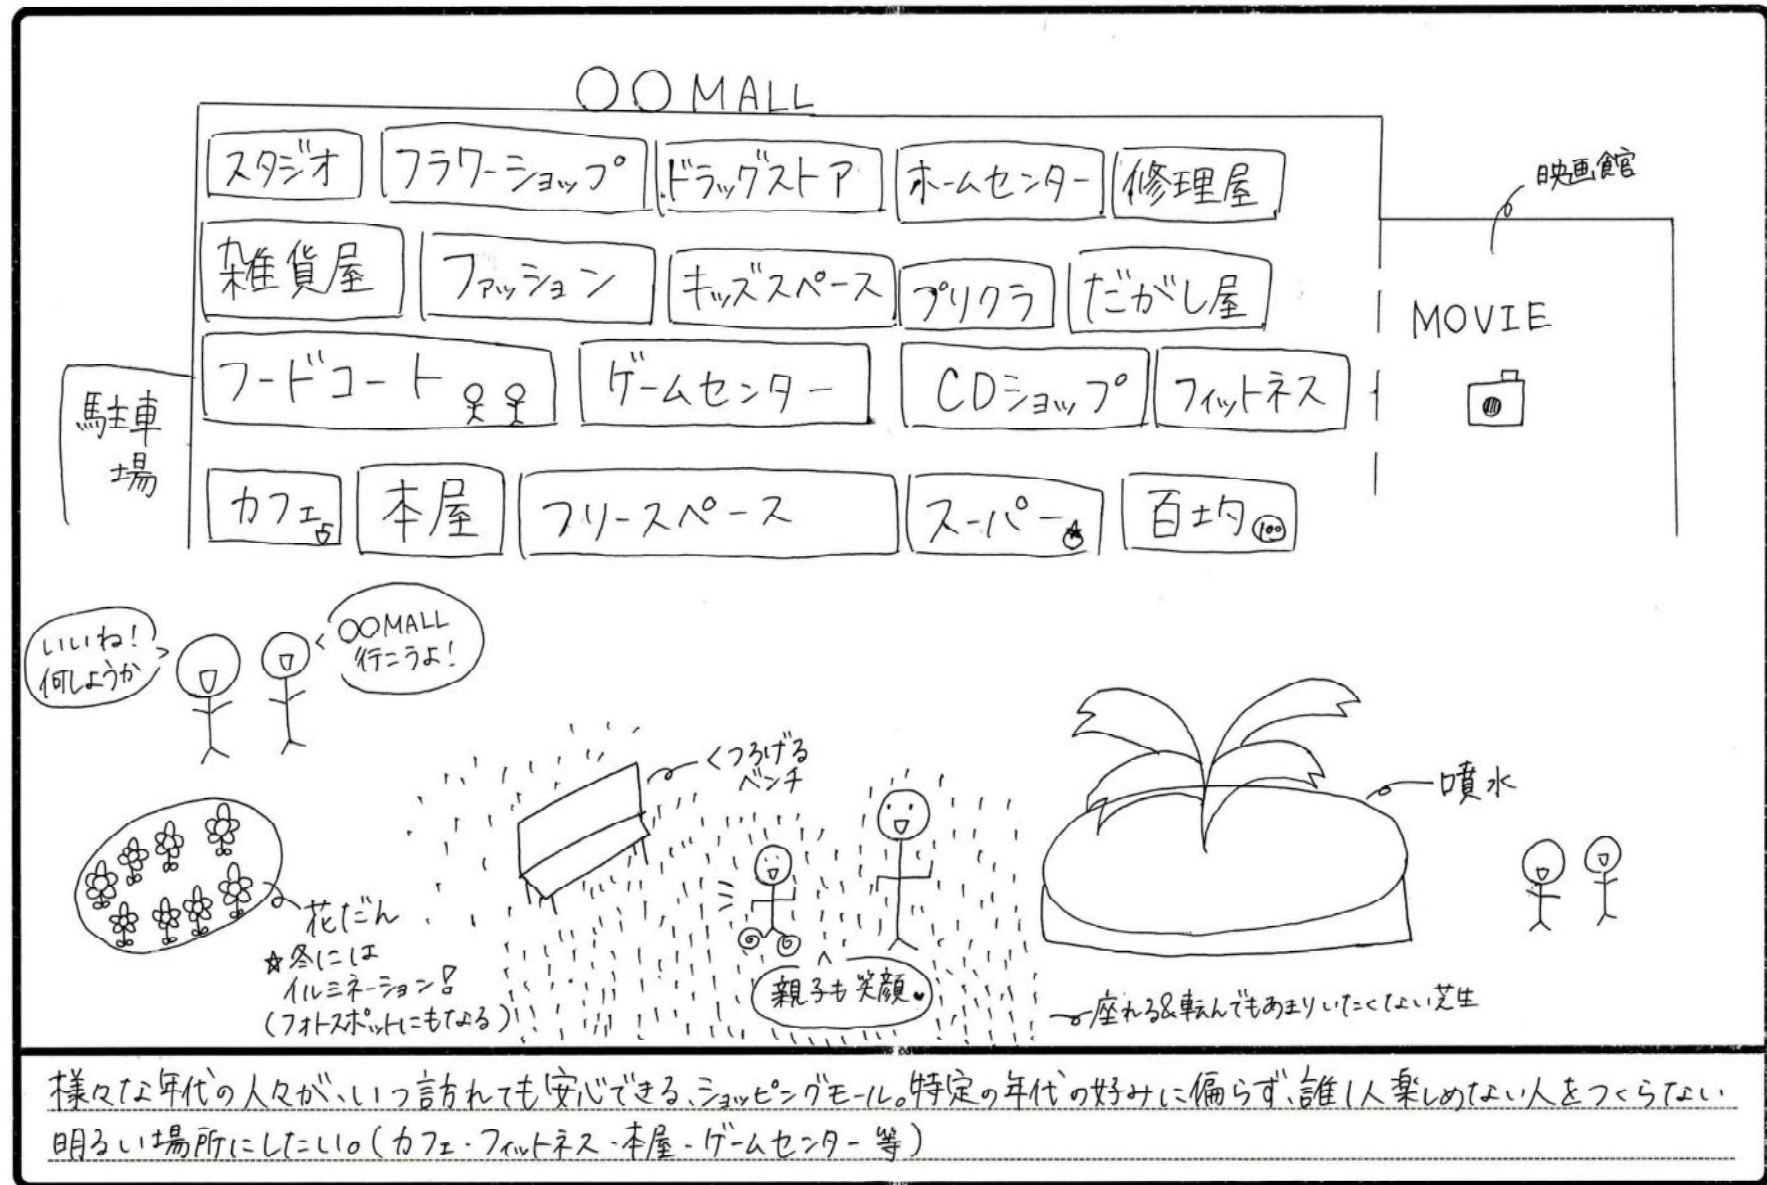 ○○MALL
スタジオ
フラワーショップ
ドラッグストア
ホームセンター
修理屋
映画館
雑貨屋
ファッション
キッズスペース
プリクラ
だがし屋
MOVIE
フードコート
ゲームセンター
CDショップ
フィットネス
駐車
場
カフェ
本屋
フリースペース
スーパー
百均
100
いいね!
何しようか
○○MALL
行こうよ!
くつろげる
ベンチ
噴水
花だん
☆冬には
イルミネーション!
(フォトスポットにもなる)
親子も笑顔♥
座れる&転んでもあまりいたくない芝生
様々な年代の人々が、いつ訪れても安心できる、ショッピングモール。特定の年代の好みに偏らず、誰1人楽しめない人をつくらない
明るい場所にしたい。(カフェ・フィットネス・本屋・ゲームセンター等)